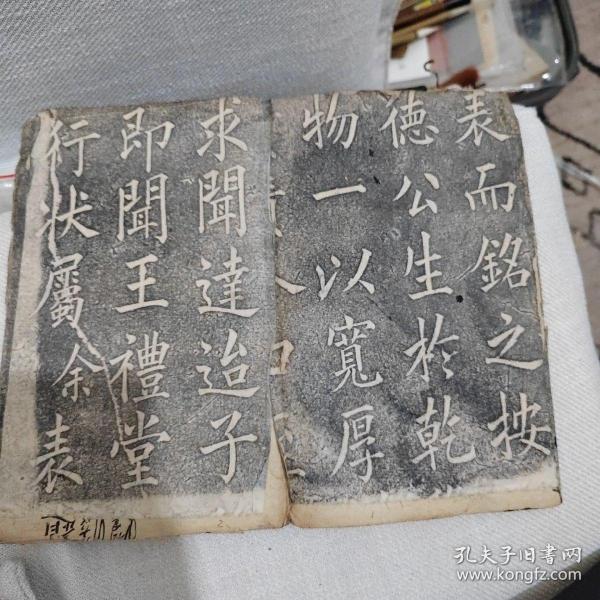 表而銘之按
德公生於乾
物一以寬厚
求聞達迨子
即聞王禮堂
行状屬余表
孔夫子旧书网
www.kongfz.com